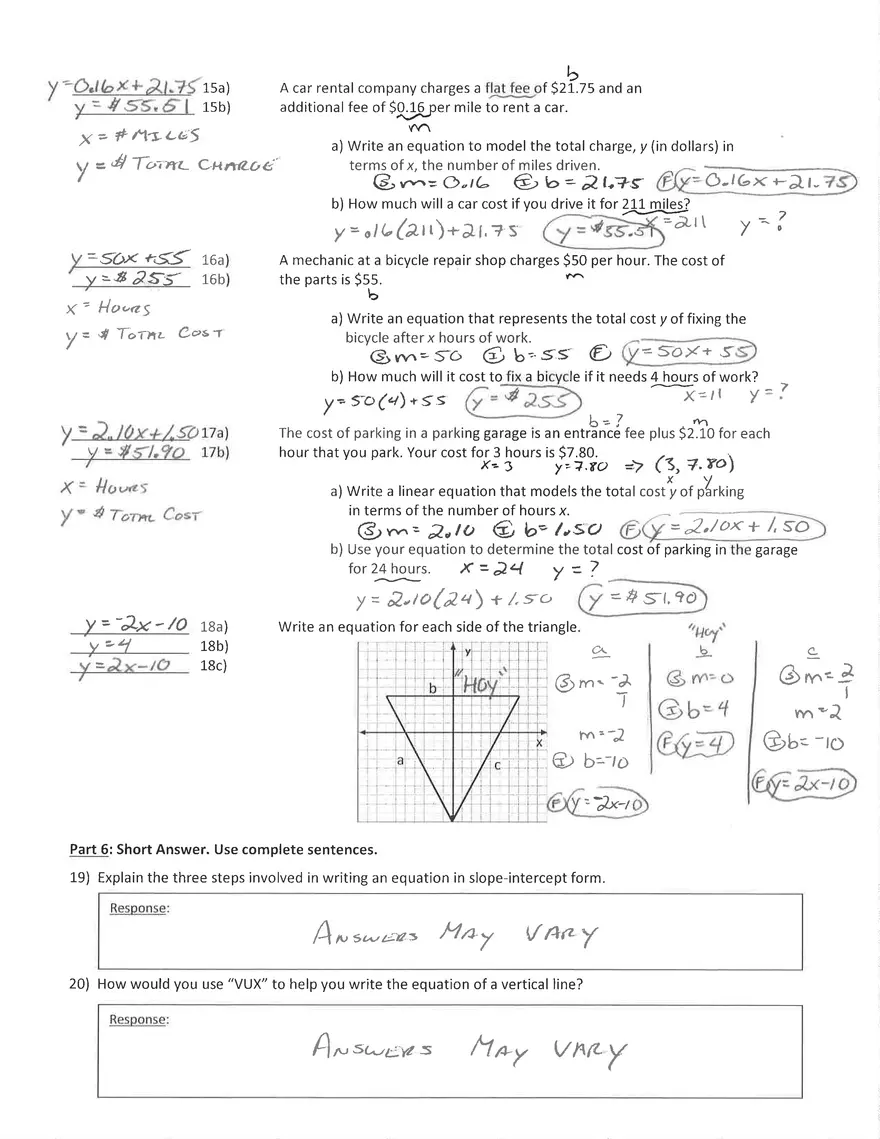 b
y=0.16x+21.75 15a) A car rental company charges a flat fee of $21.75 and an
y=$55.51 15b) additional fee of $0.16 per mile to rent a car.
x = # MILES m
a) Write an equation to model the total charge, y (in dollars) in
y = $ TOTAL CHARGE terms of x, the number of miles driven.
Ⓢ m=0.16 Ⓘ b=21.75 Ⓕ y=0.16x+21.75
b) How much will a car cost if you drive it for 211 miles?
y=.16(211)+21.75 y=$55.51 x=211 y=?
y=50x+55 16a) A mechanic at a bicycle repair shop charges $50 per hour. The cost of
y=$255 16b) the parts is $55. m
b
x = HOURS
a) Write an equation that represents the total cost y of fixing the
y = $ TOTAL COST bicycle after x hours of work.
Ⓢ m=50 Ⓘ b=55 Ⓕ y=50x+55
b) How much will it cost to fix a bicycle if it needs 4 hours of work?
y=50(4)+55 y=$255 x=11 y=?
b=? m
y=2.10x+1.50 17a) The cost of parking in a parking garage is an entrance fee plus $2.10 for each
y=$51.90 17b) hour that you park. Your cost for 3 hours is $7.80.
x=3 y=7.80 => (3, 7.80)
x y
x = HOURS a) Write a linear equation that models the total cost y of parking
y = $ TOTAL COST in terms of the number of hours x.
Ⓢ m=2.10 Ⓘ b=1.50 Ⓕ y=2.10x+1.50
b) Use your equation to determine the total cost of parking in the garage
for 24 hours. x=24 y=?
y=2.10(24)+1.50 y=$51.90
y=-2x-10 18a) Write an equation for each side of the triangle.
y=4 18b)
y=2x-10 18c)
y
b "HOY"
x
a
c
a
Ⓢ m=-2
1
m=-2
Ⓘ b=-10
Ⓕ y=-2x-10
"HOY"
b
Ⓢ m=0
Ⓘ b=4
Ⓕ y=4
c
Ⓢ m=2
1
m=2
Ⓘ b=-10
Ⓕ y=2x-10
Part 6: Short Answer. Use complete sentences.
19) Explain the three steps involved in writing an equation in slope-intercept form.
Response:
ANSWERS MAY VARY
20) How would you use “VUX” to help you write the equation of a vertical line?
Response:
ANSWERS MAY VARY